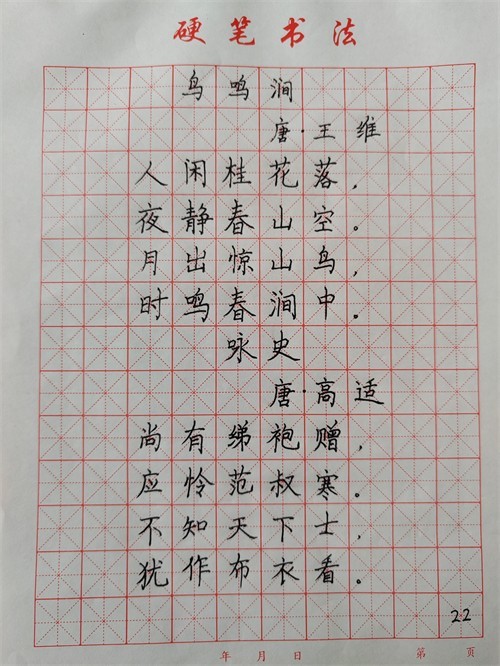 硬笔书法
鸟鸣涧
唐·王维
人闲桂花落，
夜静春山空。
月出惊山鸟，
时鸣春涧中。
咏史
唐·高适
尚有绨袍赠，
应怜范叔寒。
不知天下士，
犹作布衣看。
22
年 月 日 第 页